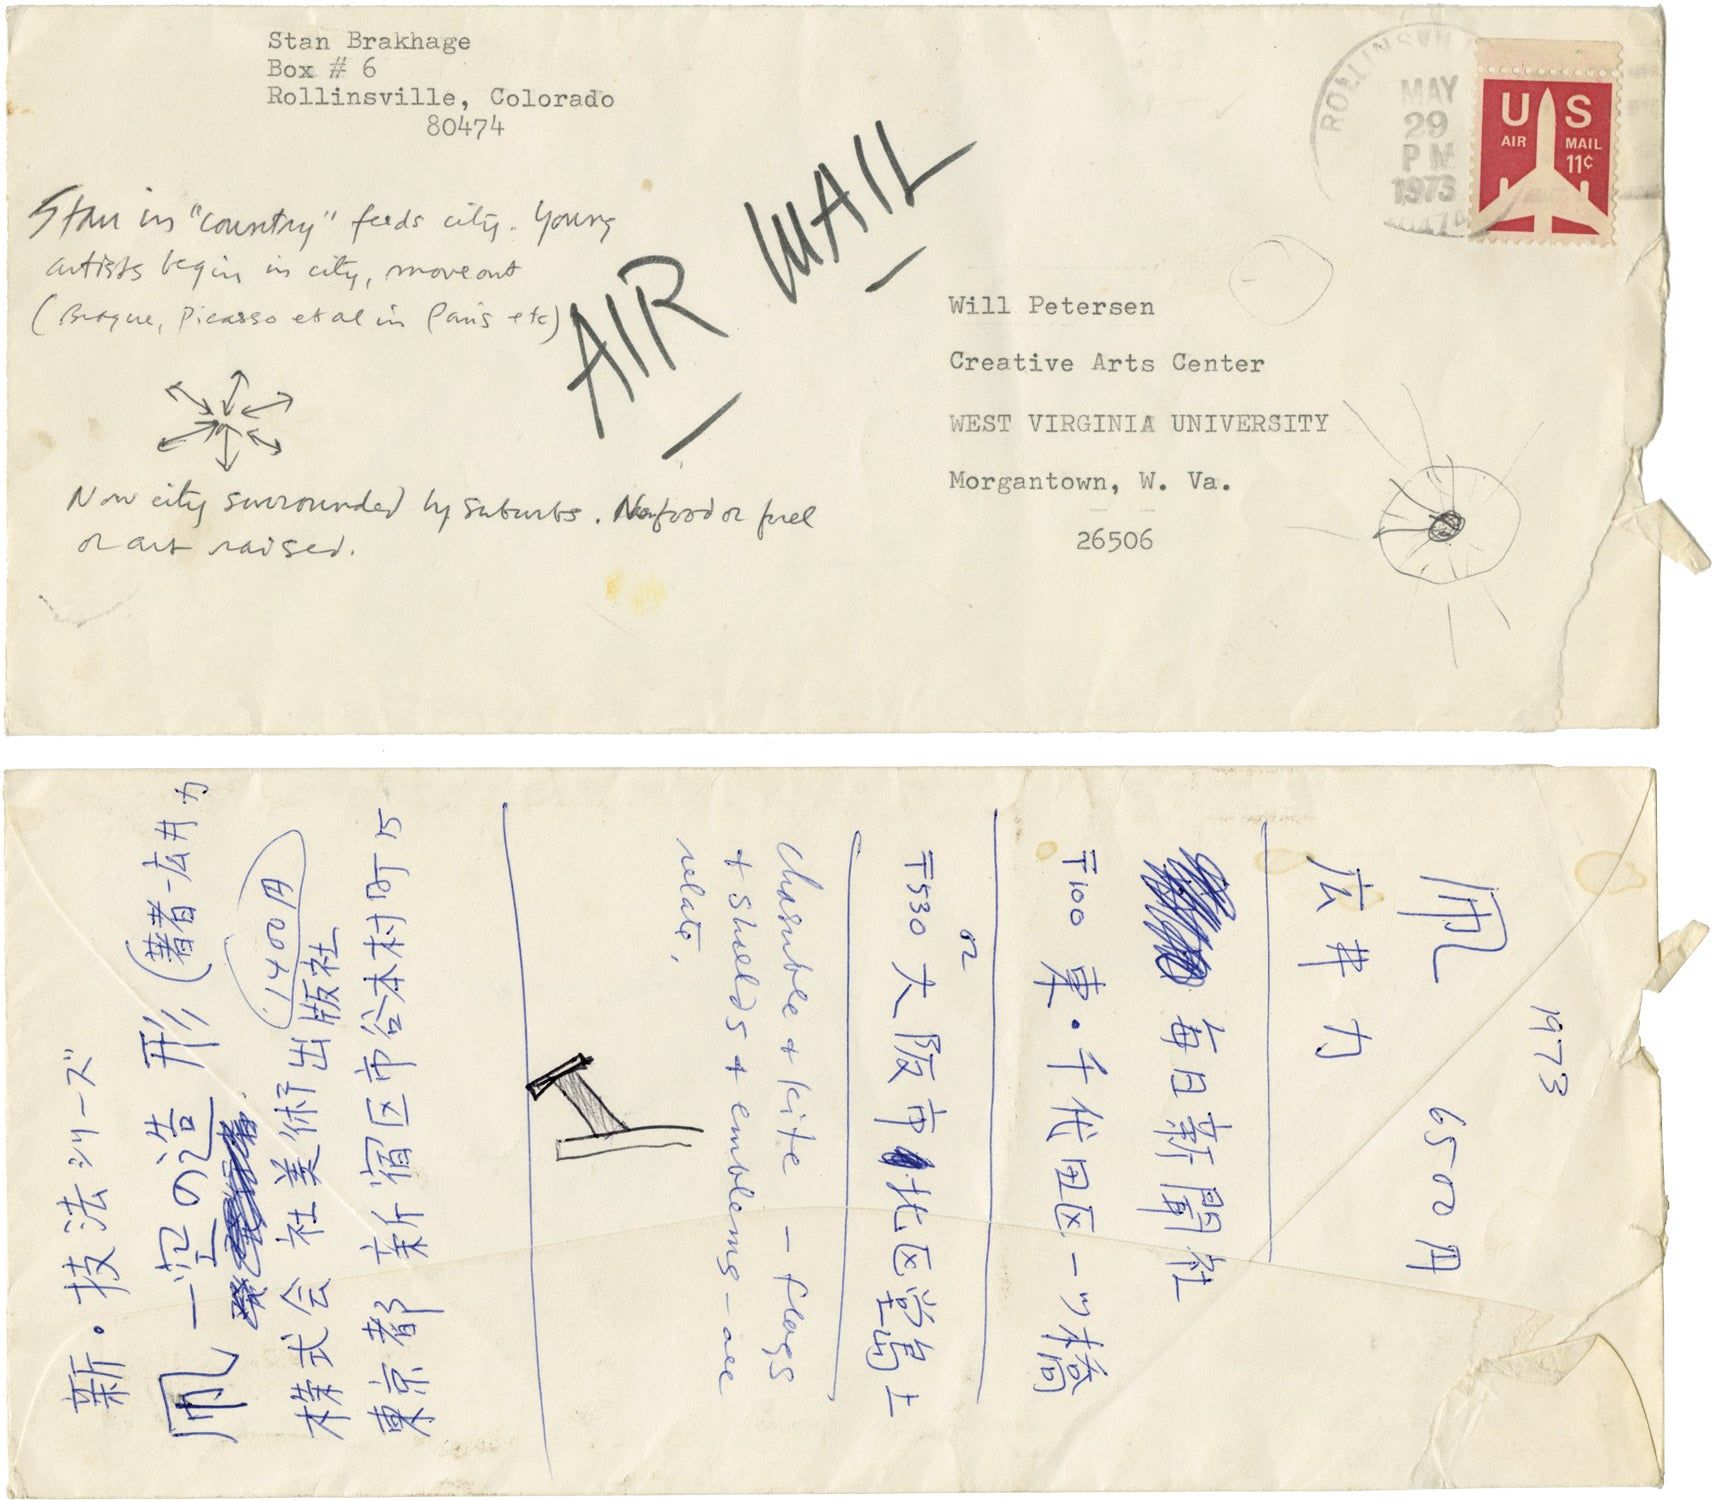 Stan Brakhage
Box # 6
Rollinsville, Colorado
80474
ROLLINSVILLE
MAY
29
PM
1973
US
AIR MAIL
11¢
AIR MAIL
Stan in "country" feeds city. Young
artists begin in city, move out
(Braque, Picasso et al in Paris etc)
Now city surrounded by suburbs. No food or fuel
or art raised.
Will Petersen
Creative Arts Center
WEST VIRGINIA UNIVERSITY
Morgantown, W. Va.
26506
新・技法シリーズ
凧 —空の造形 (著者-広井力
1400円
株式会社美術出版社
東京都新宿区市谷本村町15
chasuble + kite — flags
+ shields + emblems — are
related.
〒530 大阪市北区堂島上
or
〒100 東・千代田区一ツ橋
毎日新聞社
広井力
凧 6500円
1973